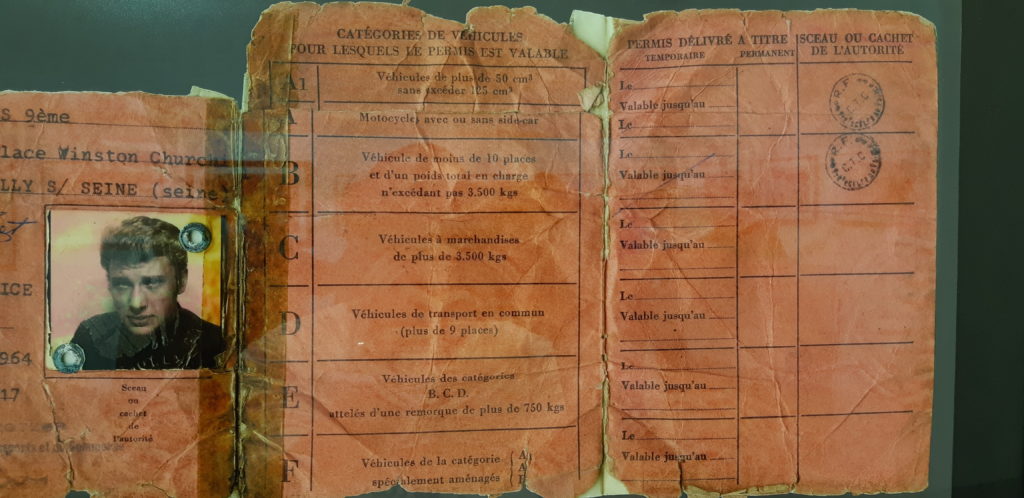 S 9ème
lace Winston Church
LLY S/ SEINE (seine
ICE
964
17
Sceau
ou
cachet
de
l'autorité
CATÉGORIES DE VÉHICULES
POUR LESQUELS LE PERMIS EST VALABLE
A1
Véhicules de plus de 50 cm³
sans excéder 125 cm³
A
Motocycles avec ou sans side-car
B
Véhicule de moins de 10 places
et d'un poids total en charge
n'excédant pas 3.500 kgs
C
Véhicules à marchandises
de plus de 3.500 kgs
D
Véhicules de transport en commun
(plus de 9 places)
E
Véhicules des catégories
B. C. D.
attelés d'une remorque de plus de 750 kgs
F
Véhicules de la catégorie
spécialement aménagés
A1
A
B
PERMIS DÉLIVRÉ A TITRE
TEMPORAIRE
PERMANENT
SCEAU OU CACHET
DE L'AUTORITÉ
Le
Valable jusqu'au
Le
Le
Valable jusqu'au
Le
Valable jusqu'au
Le
Valable jusqu'au
Le
Valable jusqu'au
Le
Valable jusqu'au
R.F.
C.T.C
R.F.
C.T.C